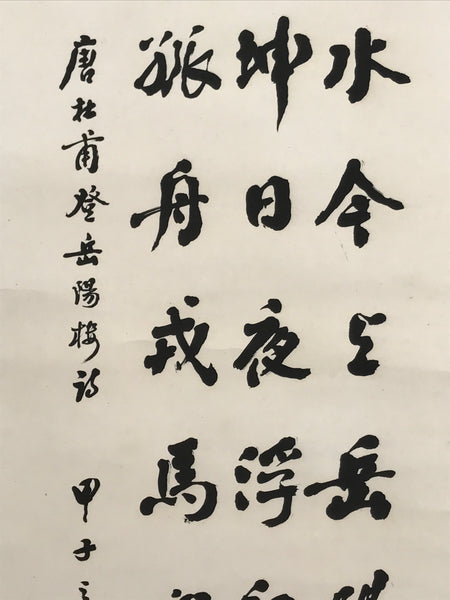 水今上岳
坤日夜浮
孤舟戎馬
唐杜甫登岳陽楼詩 甲子